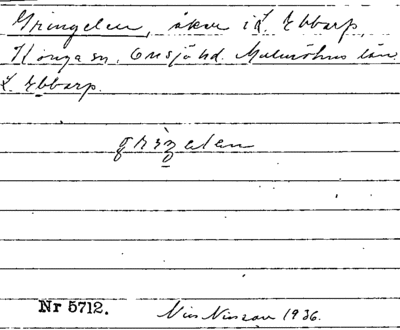 Gringelen, åker i L. Ebbarp,
Höörs sn. Onsjö hd. Malmöhus län.
L. Ebbarp.
griŋelen
Nr 5712.
Nils Nilsson 1936.